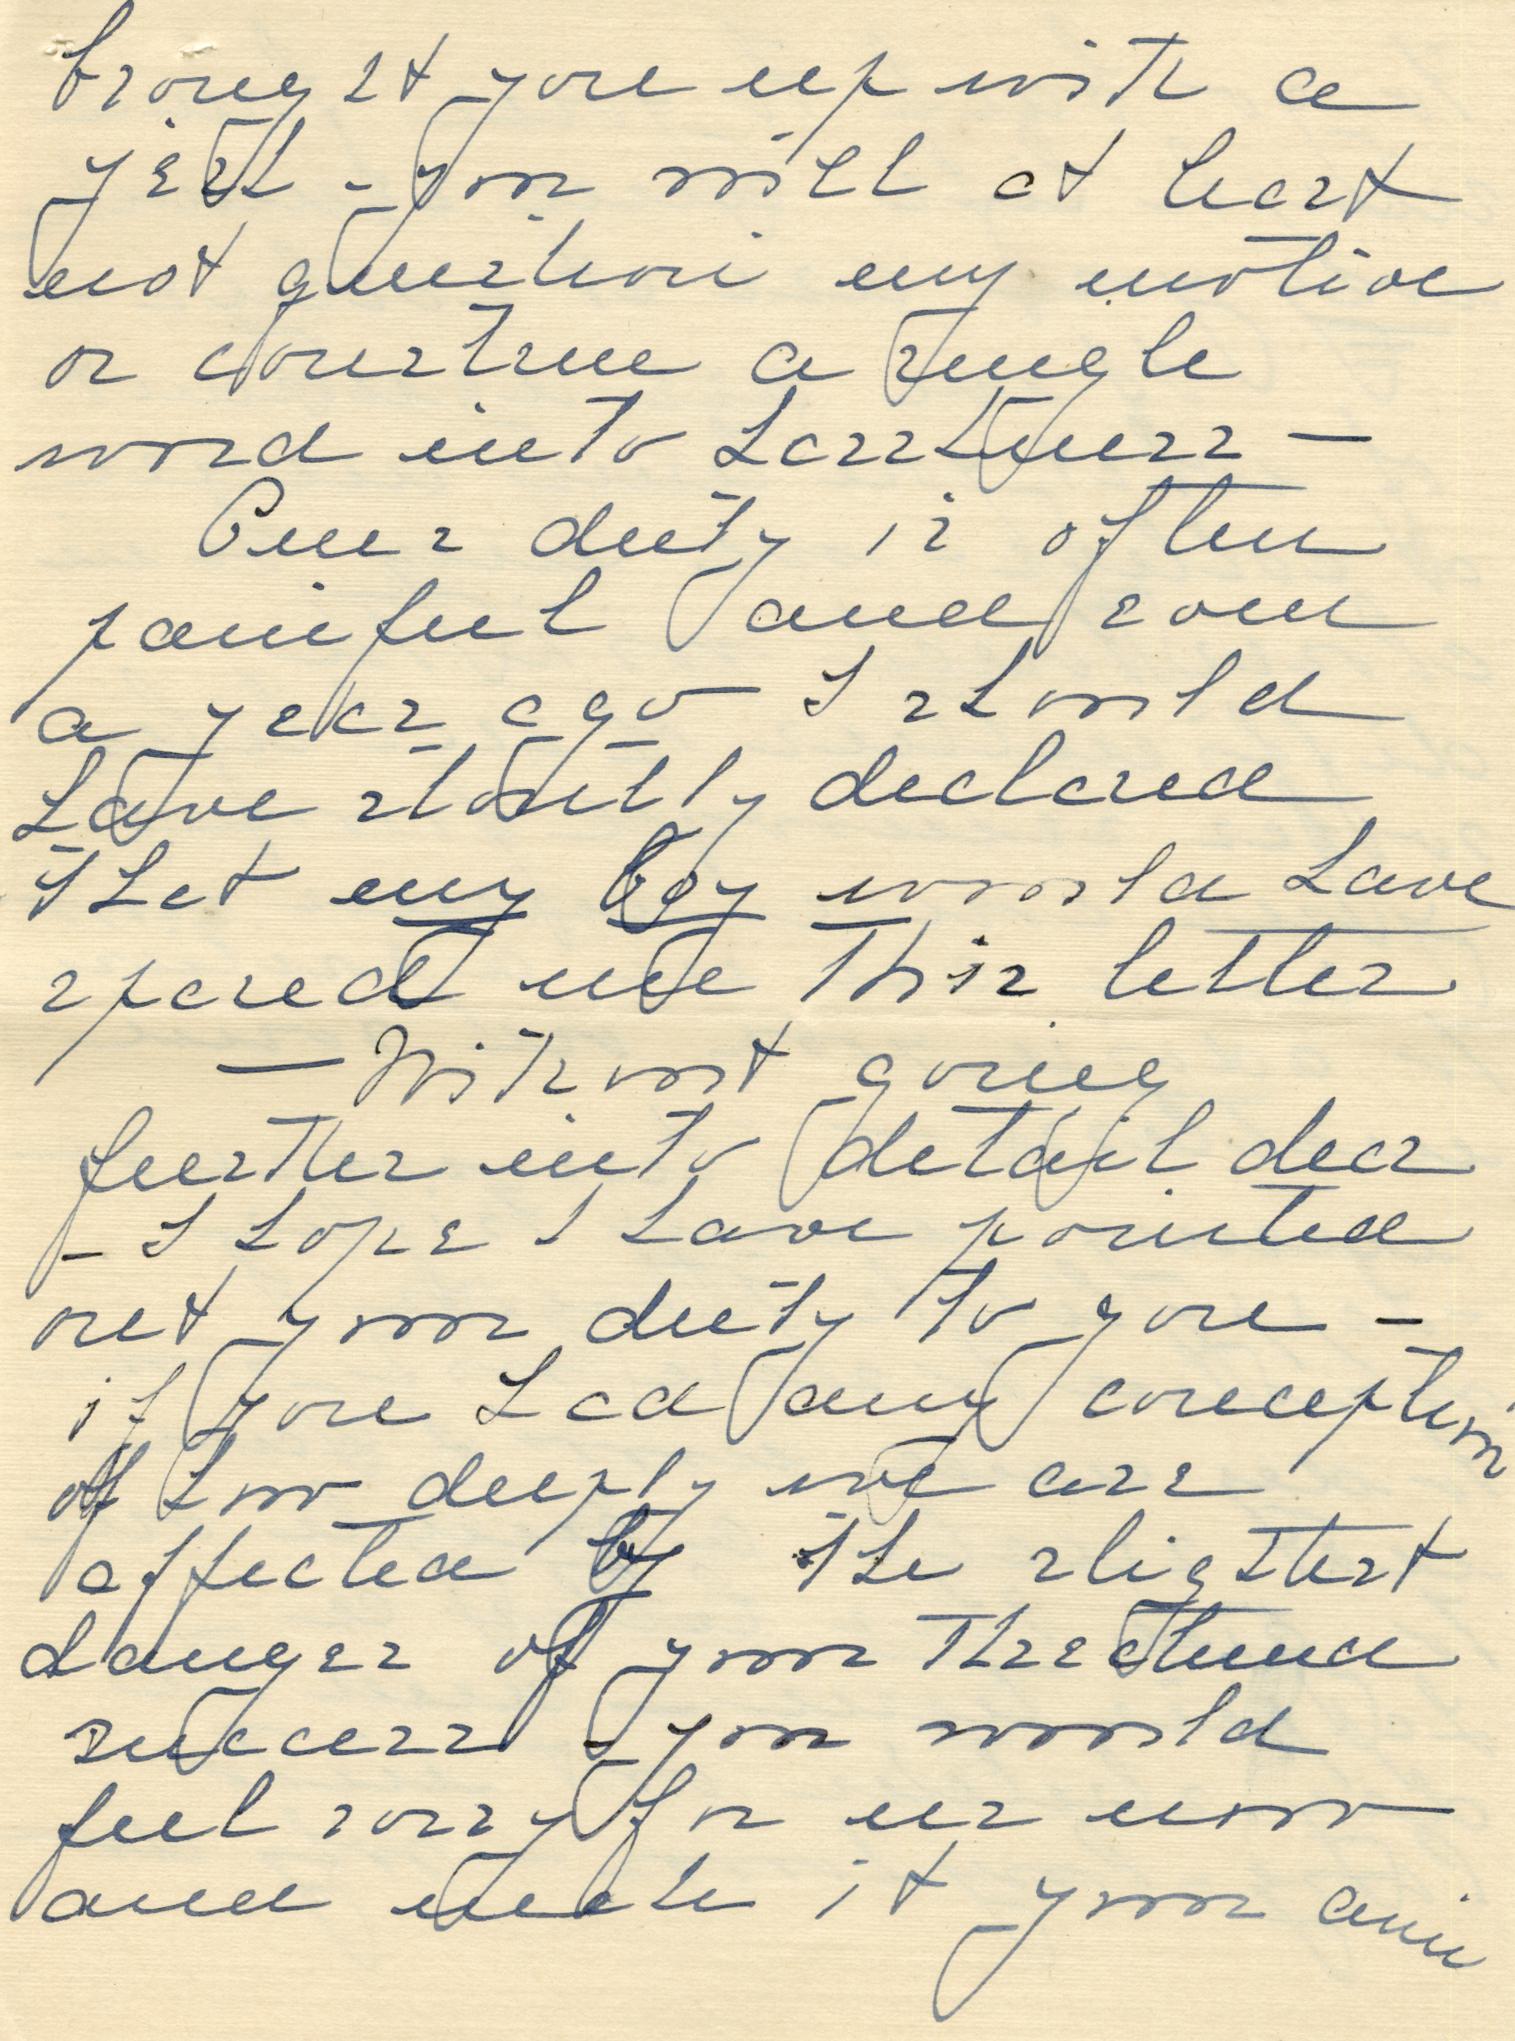 brought you up with a
jerk - you will at least
not question my motive
or construe a single
word into harshness -
Ones duty is often
painful and som
a year ago I should
have stoutly declared
that my boy would have
spared me this letter
- Without going
further into detail dear
- I hope I have pointed
out your duty to you -
if you had any conception
of how deeply we are
affected by the slightest
danger of your threatened
success - you would
feel sorry for us now
and make it your aim